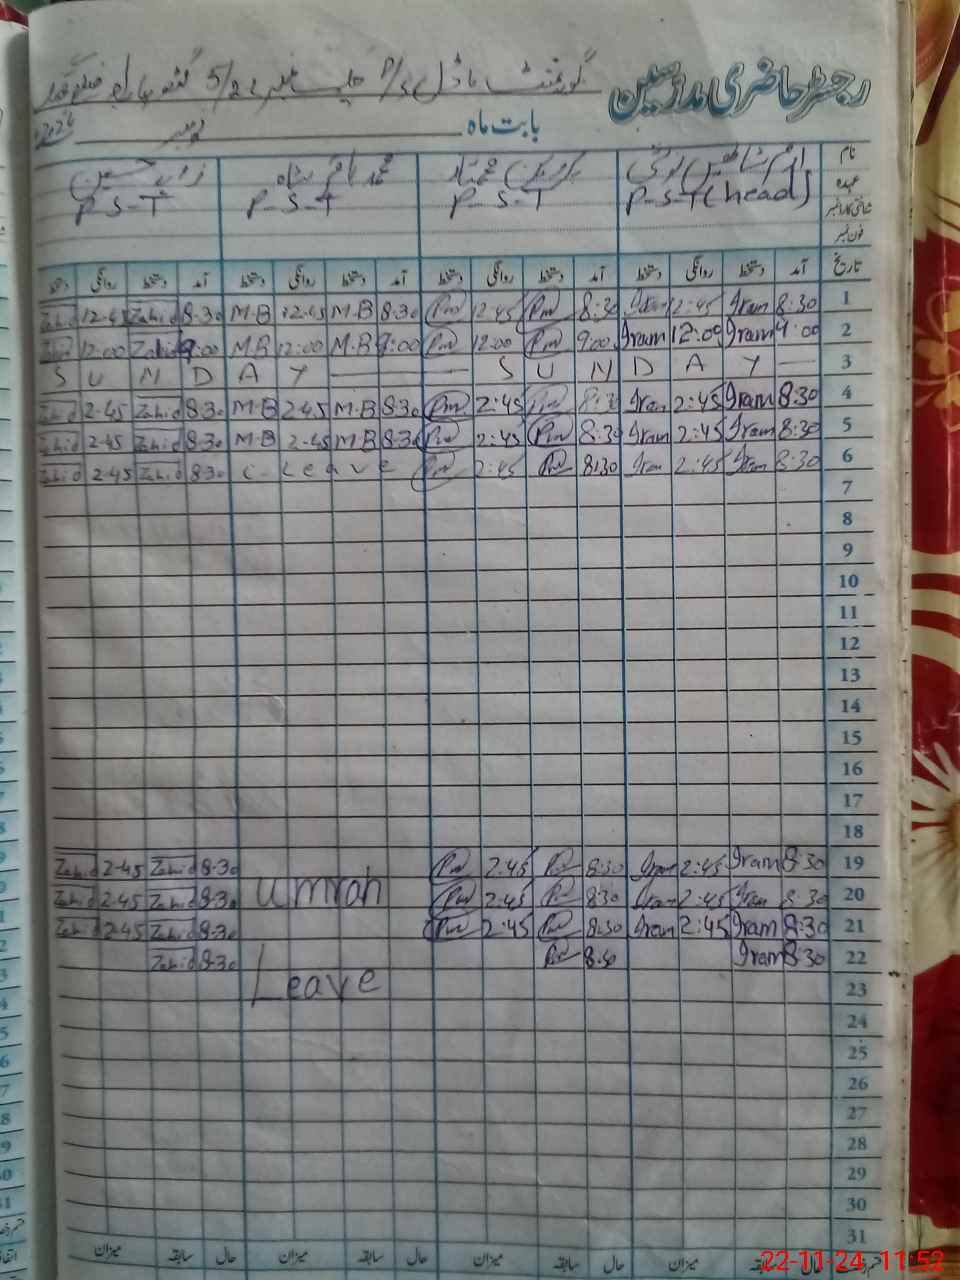 رجسٹر حاضری مدرسین
گورنمنٹ ماڈل 5/22
بابت ماہ نومبر 2024
نام
عہدہ P-S-T(head) P-S-T P-S-T P-S-T
شناختی کارڈ نمبر
فون نمبر
تاریخ آمد دستخط روانگی دستخط آمد دستخط روانگی دستخط آمد دستخط روانگی دستخط آمد دستخط روانگی دستخط
Zahid 12-45 Zahid 8-30 M-B 12-45 M-B 8-30 12:45 8:30 Iram 12:45 Iram 8:30 1
Zahid 12:00 Zahid 9:00 M-B 12:00 M-B 9:00 12:00 9:00 Iram 12:00 Iram 9:00 2
S U N D A Y S U N D A Y 3
Zahid 2-45 Zahid 8-30 M-B 2-45 M-B 8-30 2:45 8:30 Iram 2:45 Iram 8:30 4
Zahid 2-45 Zahid 8-30 M-B 2-45 M-B 8-30 2:45 8:30 Iram 2:45 Iram 8:30 5
Zahid 2-45 Zahid 8-30 C-Leave 2:45 8:30 Iram 2:45 Iram 8:30 6
7
8
9
10
11
12
13
14
15
16
17
18
Zahid 2-45 Zahid 8-30 2:45 8:30 Iram 2:45 Iram 8:30 19
Zahid 2-45 Zahid 8-30 Umrah 2:45 8:30 Iram 2:45 Iram 8:30 20
Zahid 2-45 Zahid 8-30 2:45 8:30 Iram 2:45 Iram 8:30 21
Zahid 8-30 8:30 Iram 8:30 22
Leave 23
24
25
26
27
28
29
30
31
حال سابقہ میزان حال سابقہ میزان حال سابقہ میزان حال سابقہ میزان
22-11-24 11:52